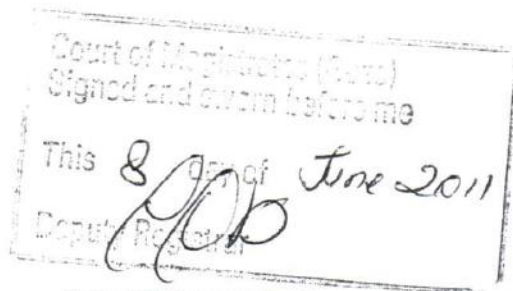 Court of Magistrates (Gozo)
Signed and sworn before me
This 8 day of June 2011
Deputy Registrar